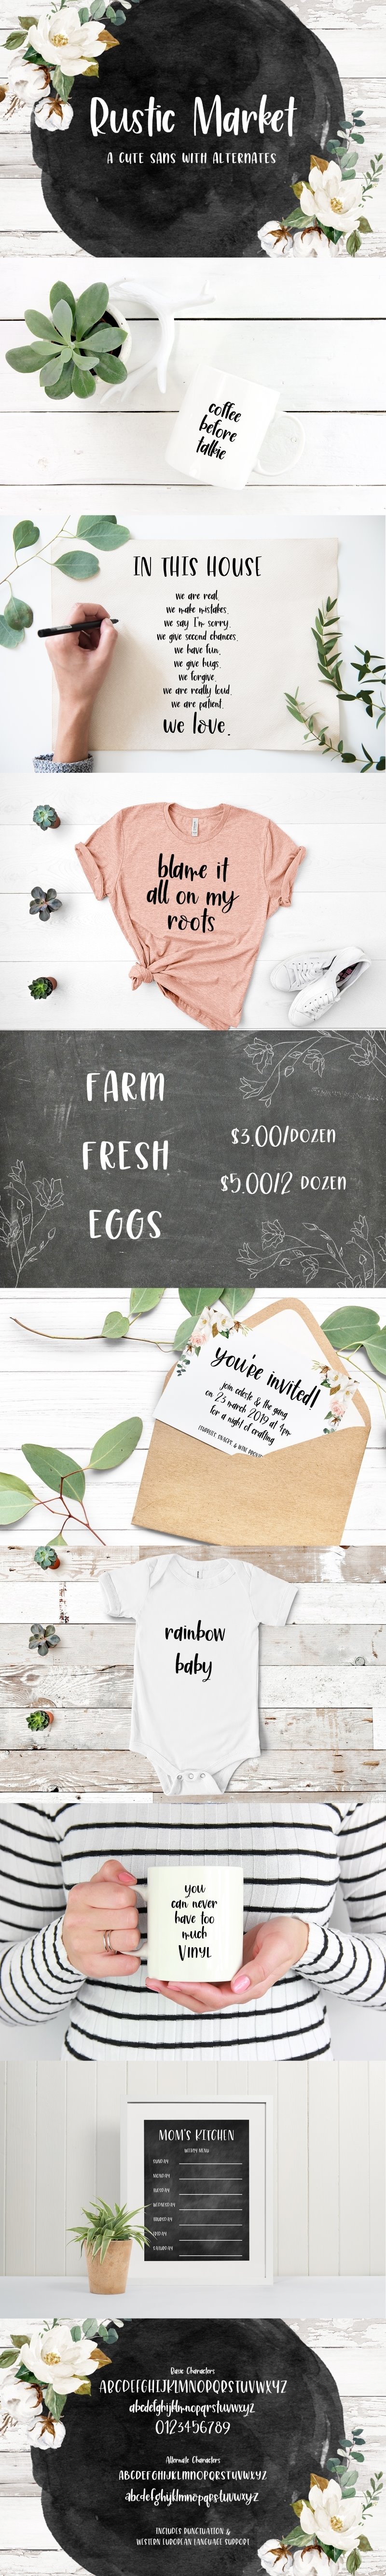 Rustic Market
A CUTE SANS WITH ALTERNATES
coffee
before
talkie
IN THIS HOUSE
we are real.
we make mistakes.
we say I'm sorry.
we give second chances.
we have fun.
we give hugs.
we forgive.
we are really loud.
we are patient.
we love.
blame it
all on my
roots
FARM
FRESH
EGGS
$3.00/DOZEN
$5.00/2 DOZEN
you're invited!
join celeste & the gang
on 23 march 2019 at 4pm
for a night of crafting
rainbow
baby
you
can never
have too
much
VINYL
MOM'S KITCHEN
WEEKLY MENU
SUNDAY
MONDAY
TUESDAY
WEDNESDAY
THURSDAY
FRIDAY
SATURDAY
Basic Characters
ABCDEFGHIJKLMNOPQRSTUVWXYZ
abcdefghijklmnopqrstuvwxyz
0123456789
Alternate Characters
ABCDEFGHIJKLMNOPQRSTUVWXYZ
abcdefghijklmnopqrstuvwxyz
INCLUDES PUNCTUATION &
WESTERN EUROPEAN LANGUAGE SUPPORT